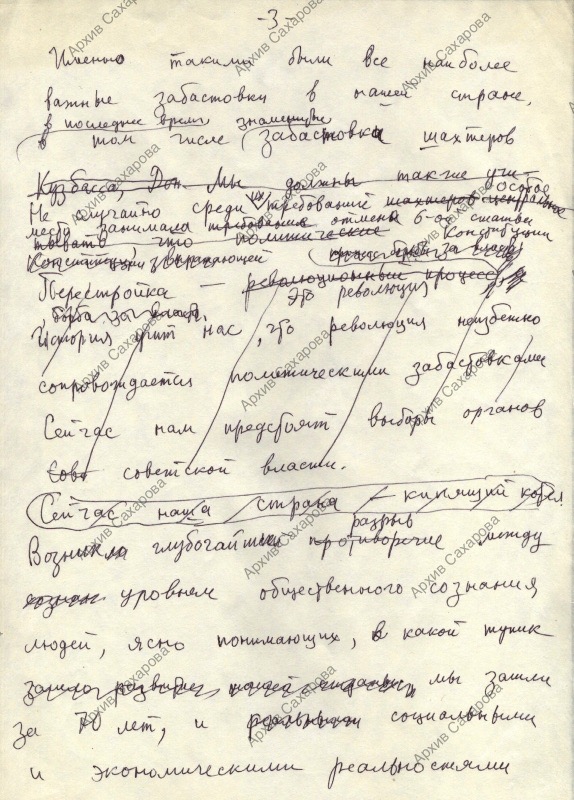 -3-
Именно такими были все наиболее
важные забастовки в нашей стране,
в последнее время знаменитые
в том числе забастовка шахтеров
Кузбасса, Дон. Мы должны также учи-
особое
Не случайно среди их требований шахтеров центральное
место занимала требования отмены 6-ой статьи
тывать, что политические Конституции
Конституции
Перестройка — революционный процесс
это революция
борьба за власть.
История учит нас, что революция неизбежно
сопровождается политическими забастовками
Сейчас нам предстоят выборы органов
Сов советской власти.
Сейчас наша страна — кипящий котел
разрыв
Возникло глубочайшее противоречие между
уровнем общественного сознания
людей, ясно понимающих, в какой тупик
мы зашли
за 70 лет, и реальными социальными
и экономическими реальностями
Архив Сахарова